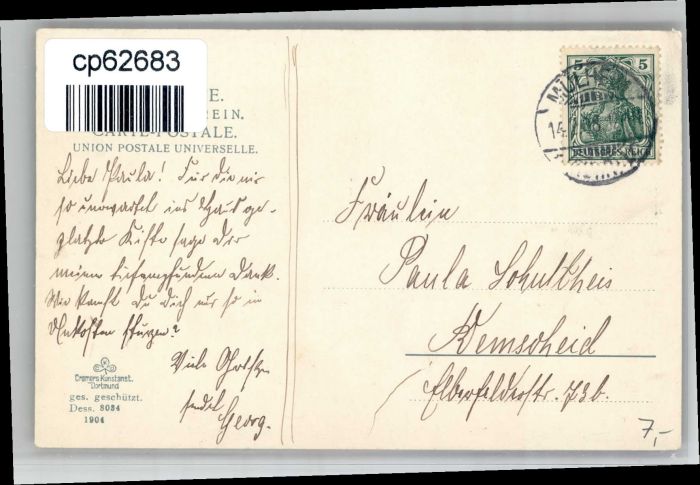 cp62683
E.
REIN.
CARTE-POSTALE.
UNION POSTALE UNIVERSELLE.
Liebe Paula! Für die mir
so unerwartet ins Haus ge-
platzte Kiste sage Dir
meinen tiefempfundenen Dank.
Wie kannst Du Dich nur so in
Unkosten stürzen?
Viele Grüße
sendet
Georg.
Cramers Kunstanst.
Dortmund
ges. geschützt.
Dess. 8084
1904
5 5
DEUTSCHES REICH
MÜLHEIM
14.
Fräulein
Paula Schultheis
Remscheid
Elberfelderstr. 73b.
7,-